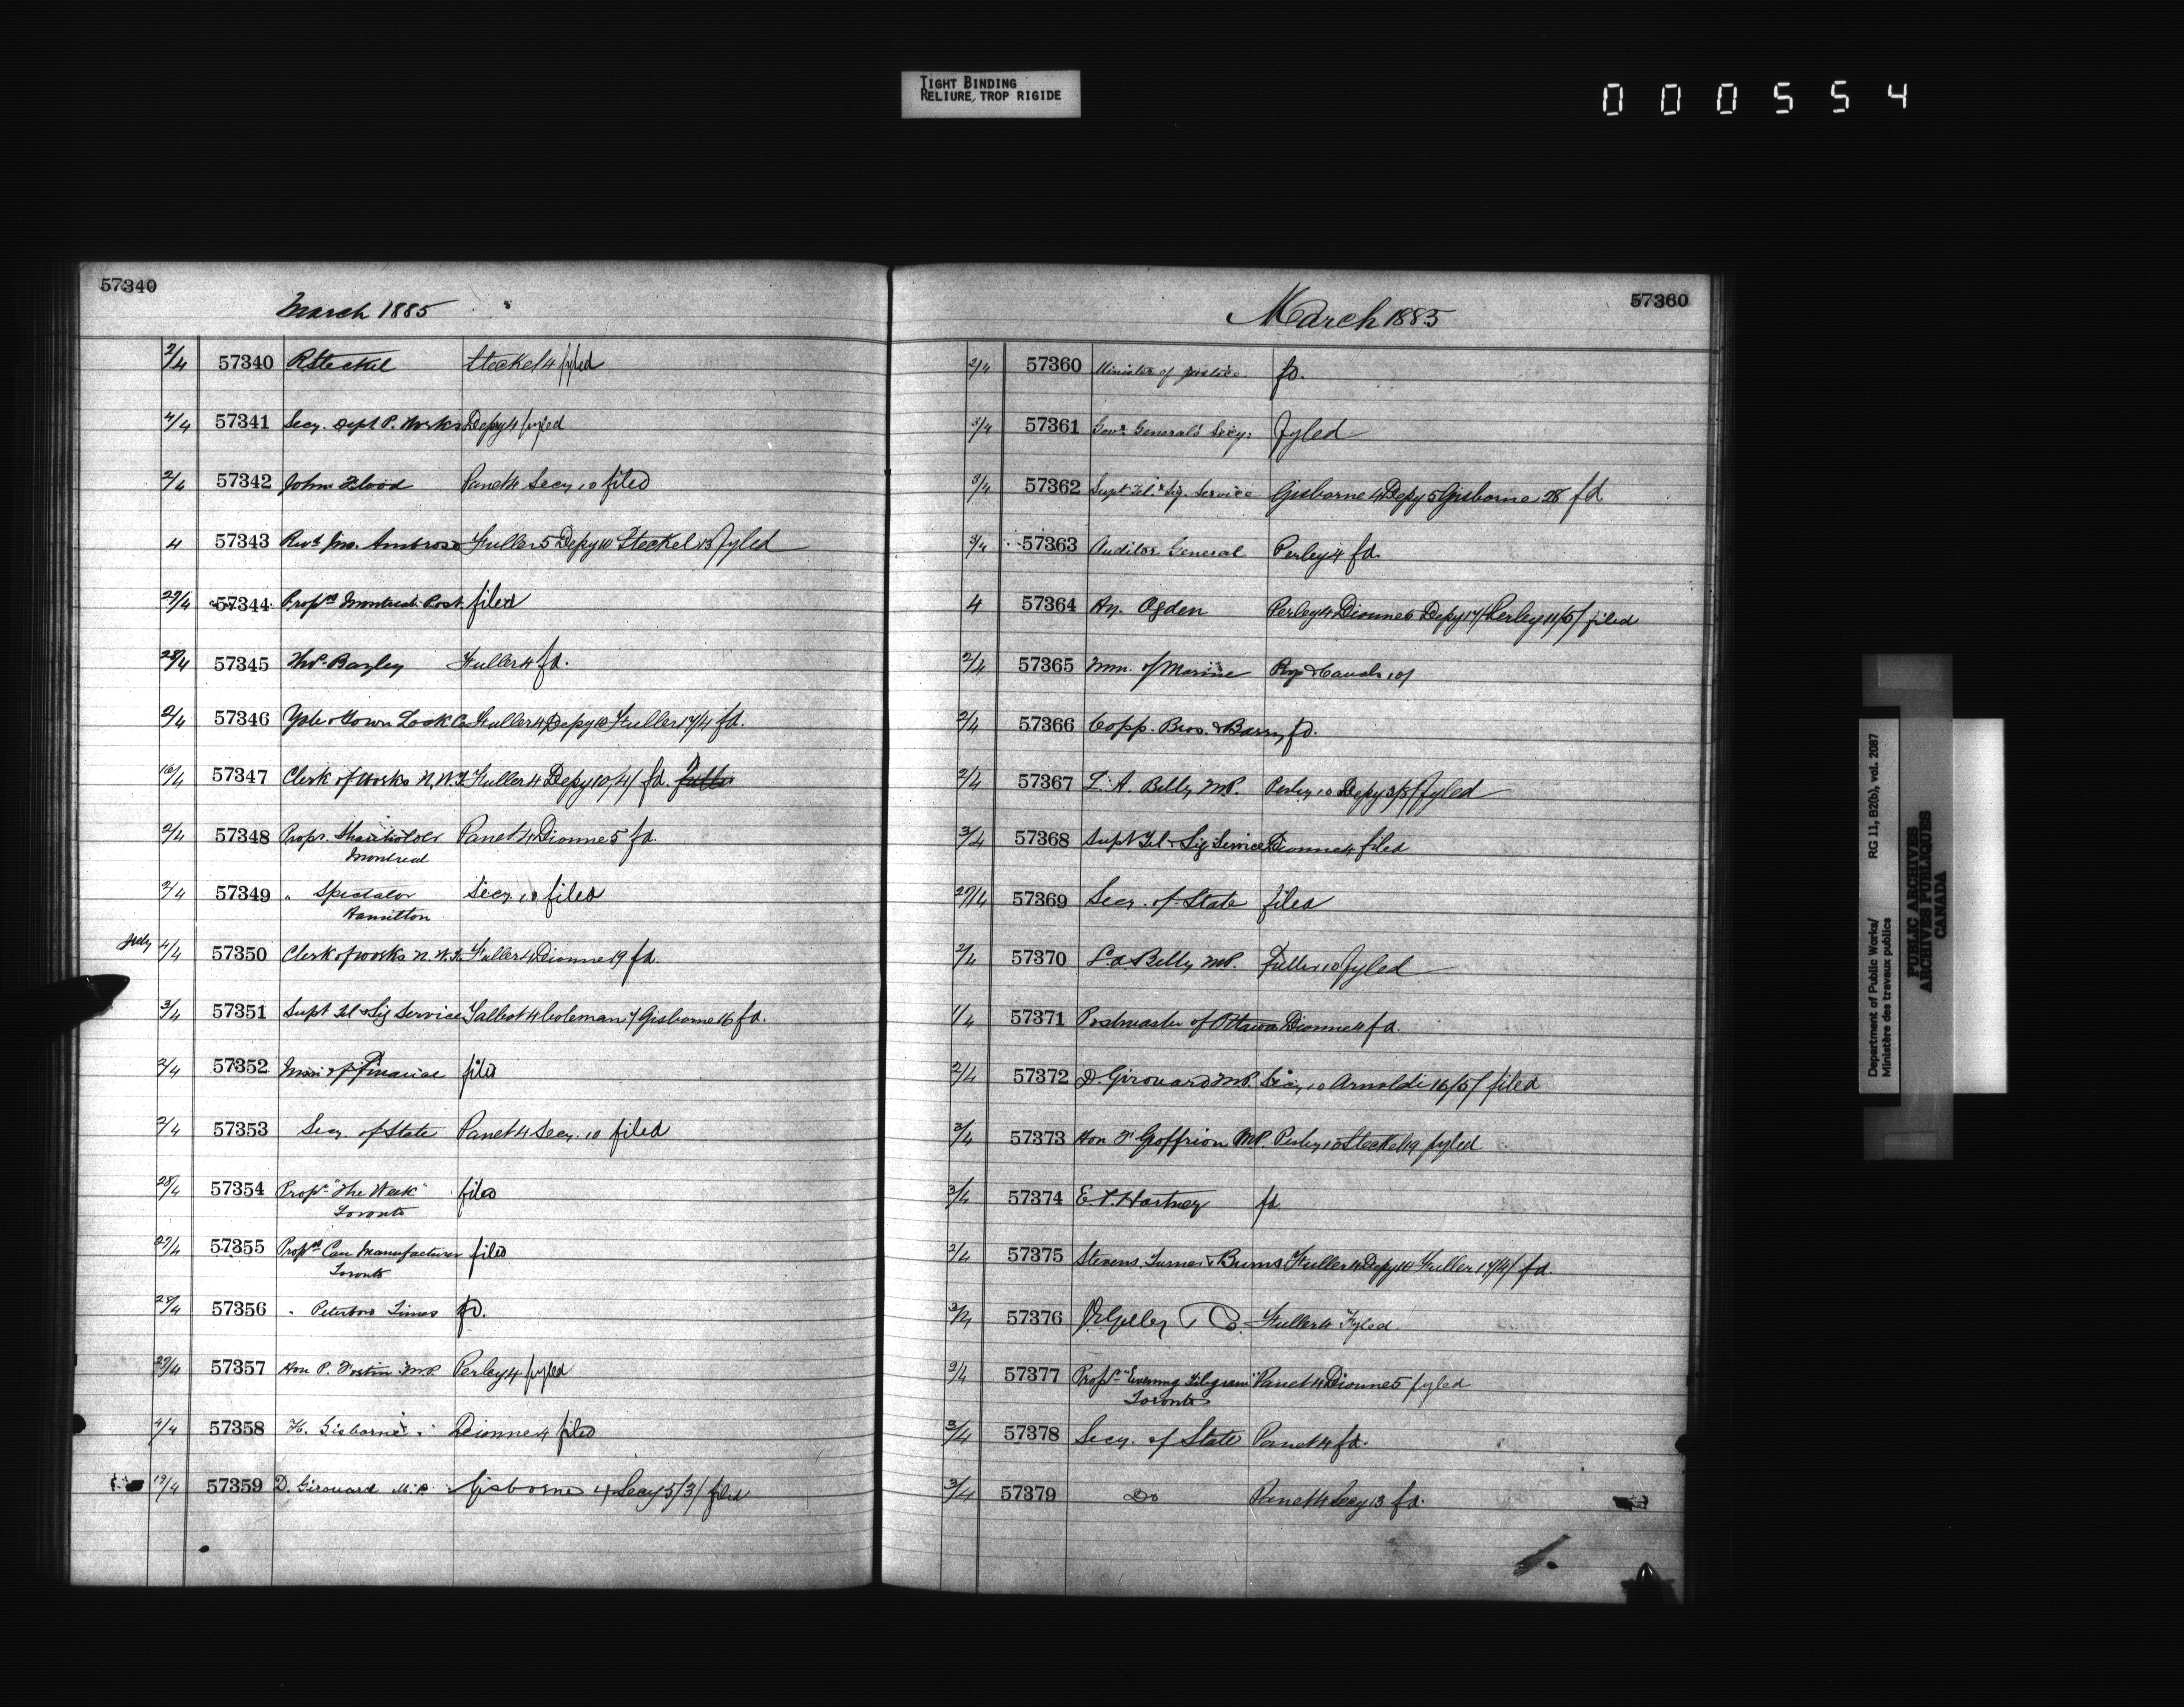 TIGHT BINDING
RELIURE TROP RIGIDE
000554
57340
March 1885
2/4 57340 R Steckel Steckel 4 fyled
4/4 57341 Secy. Dept P. Works Depy 4 fyled
2/4 57342 John Flood Panet 4 Secy 10 filed
4 57343 Revd Jno. Ambrose Fuller 5 Depy 10 Steckel 13 fyled
27/4 57344 Proprs Montreal Post filed
28/4 57345 Bazley Fuller 4 fd.
2/4 57346 Yale & Town Lock Co Fuller 4 Depy 10 Fuller 17/4 fd.
16/4 57347 Clerk of Works N.W.T. Fuller 4 Depy 10/4/ fd.
2/4 57348 Propr. Shareholder Panet 4 Dionne 5 fd.
Montreal
2/4 57349 " Spectator Secy. 10 filed
Hamilton
July 4/4 57350 Clerk of Works N.W.T. Fuller 4 Dionne 19 fd.
3/4 57351 Supt Tel & Sig Service Talbot 4 Coleman 7 Gisborne 16 fd.
2/4 57352 Min of Finance filed
2/4 57353 Secy. of State Panet 4 Secy. 10 filed
28/4 57354 Propr "The Week" filed
Toronto
27/4 57355 Proprs Can Manufacturer filed
Toronto
28/4 57356 " Peterboro Times fd.
27/4 57357 Hon P. M.P. Perley 4 fyled
4/4 57358 H. Gisborne Dionne 4 filed
19/4 57359 D. Girouard M.P. Gisborne 4 Secy 5/3/ filed
57360
March 1885
2/4 57360 Minister of Justice fd.
3/4 57361 Govr General's Secy: fyled
3/4 57362 Supt Tel & Sig. Service Gisborne 4 Depy 5 Gisborne 28 fd
3/4 57363 Auditor General Perley 4 fd.
4 57364 Hy. Ogden Perley 4 Dionne 6 Depy 17/ Perley 11/5/ filed
2/4 57365 Min. of Marine Rys & Canals 10/
2/4 57366 Copp. Bros. & Barry fd.
2/4 57367 L. A. Billy M.P. Perley 10 Depy 3/5/ fyled
3/4 57368 Supt Tel & Sig Service Dionne 4 filed
27/4 57369 Secy. of State filed
2/4 57370 L. A. Billy M.P. Fuller 10 fyled
1/4 57371 Postmaster of Ottawa Dionne 4 fd.
2/4 57372 D. Girouard M.P. Secy 10 Arnoldi 16/5/ filed
2/4 57373 Hon F Goffrion M.P. Perley 10 Steckel 19 fyled
3/4 57374 E. P. Hartney fd.
2/4 57375 Stevens, Turner & Burns Fuller 4 Depy 10 Fuller 17/4/ fd.
57376 Fuller 4 Fyled
3/4 57377 Propr "Evening Telegram" Panet 4 Dionne 5 fyled
Toronto
3/4 57378 Secy. of State Panet 4 fd.
3/4 57379 Do Panet 4 Secy 13 fd.
Department of Public Works/ RG 11, B2(b), vol. 2087
Ministère des travaux publics
PUBLIC ARCHIVES
ARCHIVES PUBLIQUES
CANADA